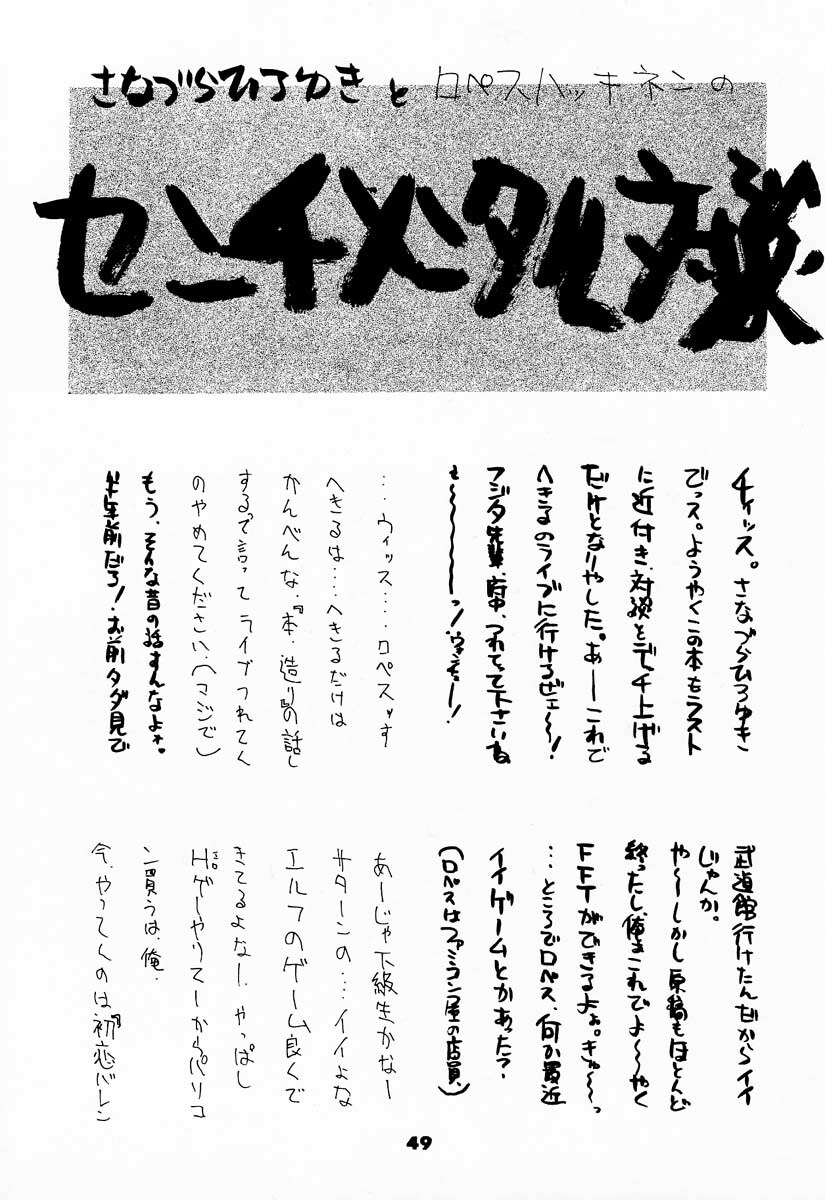 さなづらひろゆきとロペスハッキネンの
センチメンタル対談
チィッス。さなづらひろゆき
でっス。ようやくこの本もラスト
に近付き、対談とデッチ上げる
だけとなりやした。あーこれで
へきるのライブに行けるぜェ〜〜!
フジタ先輩、府中、つれてって下さいね
ェ〜〜〜〜〜っ!
…ウィッス…ロペスッす
へきるは…へきるだけは
かんべんな、『本・造り』の話し
するで言ってライブつれてく
のやめてください、(マジで)
もう、そんな昔の話すんなよォ。
半年前だろ!お前タダ見で
武道館行けたんだからイイ
じゃんか。
や〜〜しかし原稿もほとんど
終ったし、俺もこれでよ〜〜やく
FFTができるよぉ。きゅ〜〜っ
…ところでロペス、何か最近
イイゲームとかあった?
(ロペスはファミコン屋の店員)
あーじゃ下級生かなー
サターンの…イイよな
エルフのゲーム良くで
きてるよなー、やっぱし
Hゲーやりてーからパソコ
ン買うは、俺、
今、やってくのは『初恋バレン
49